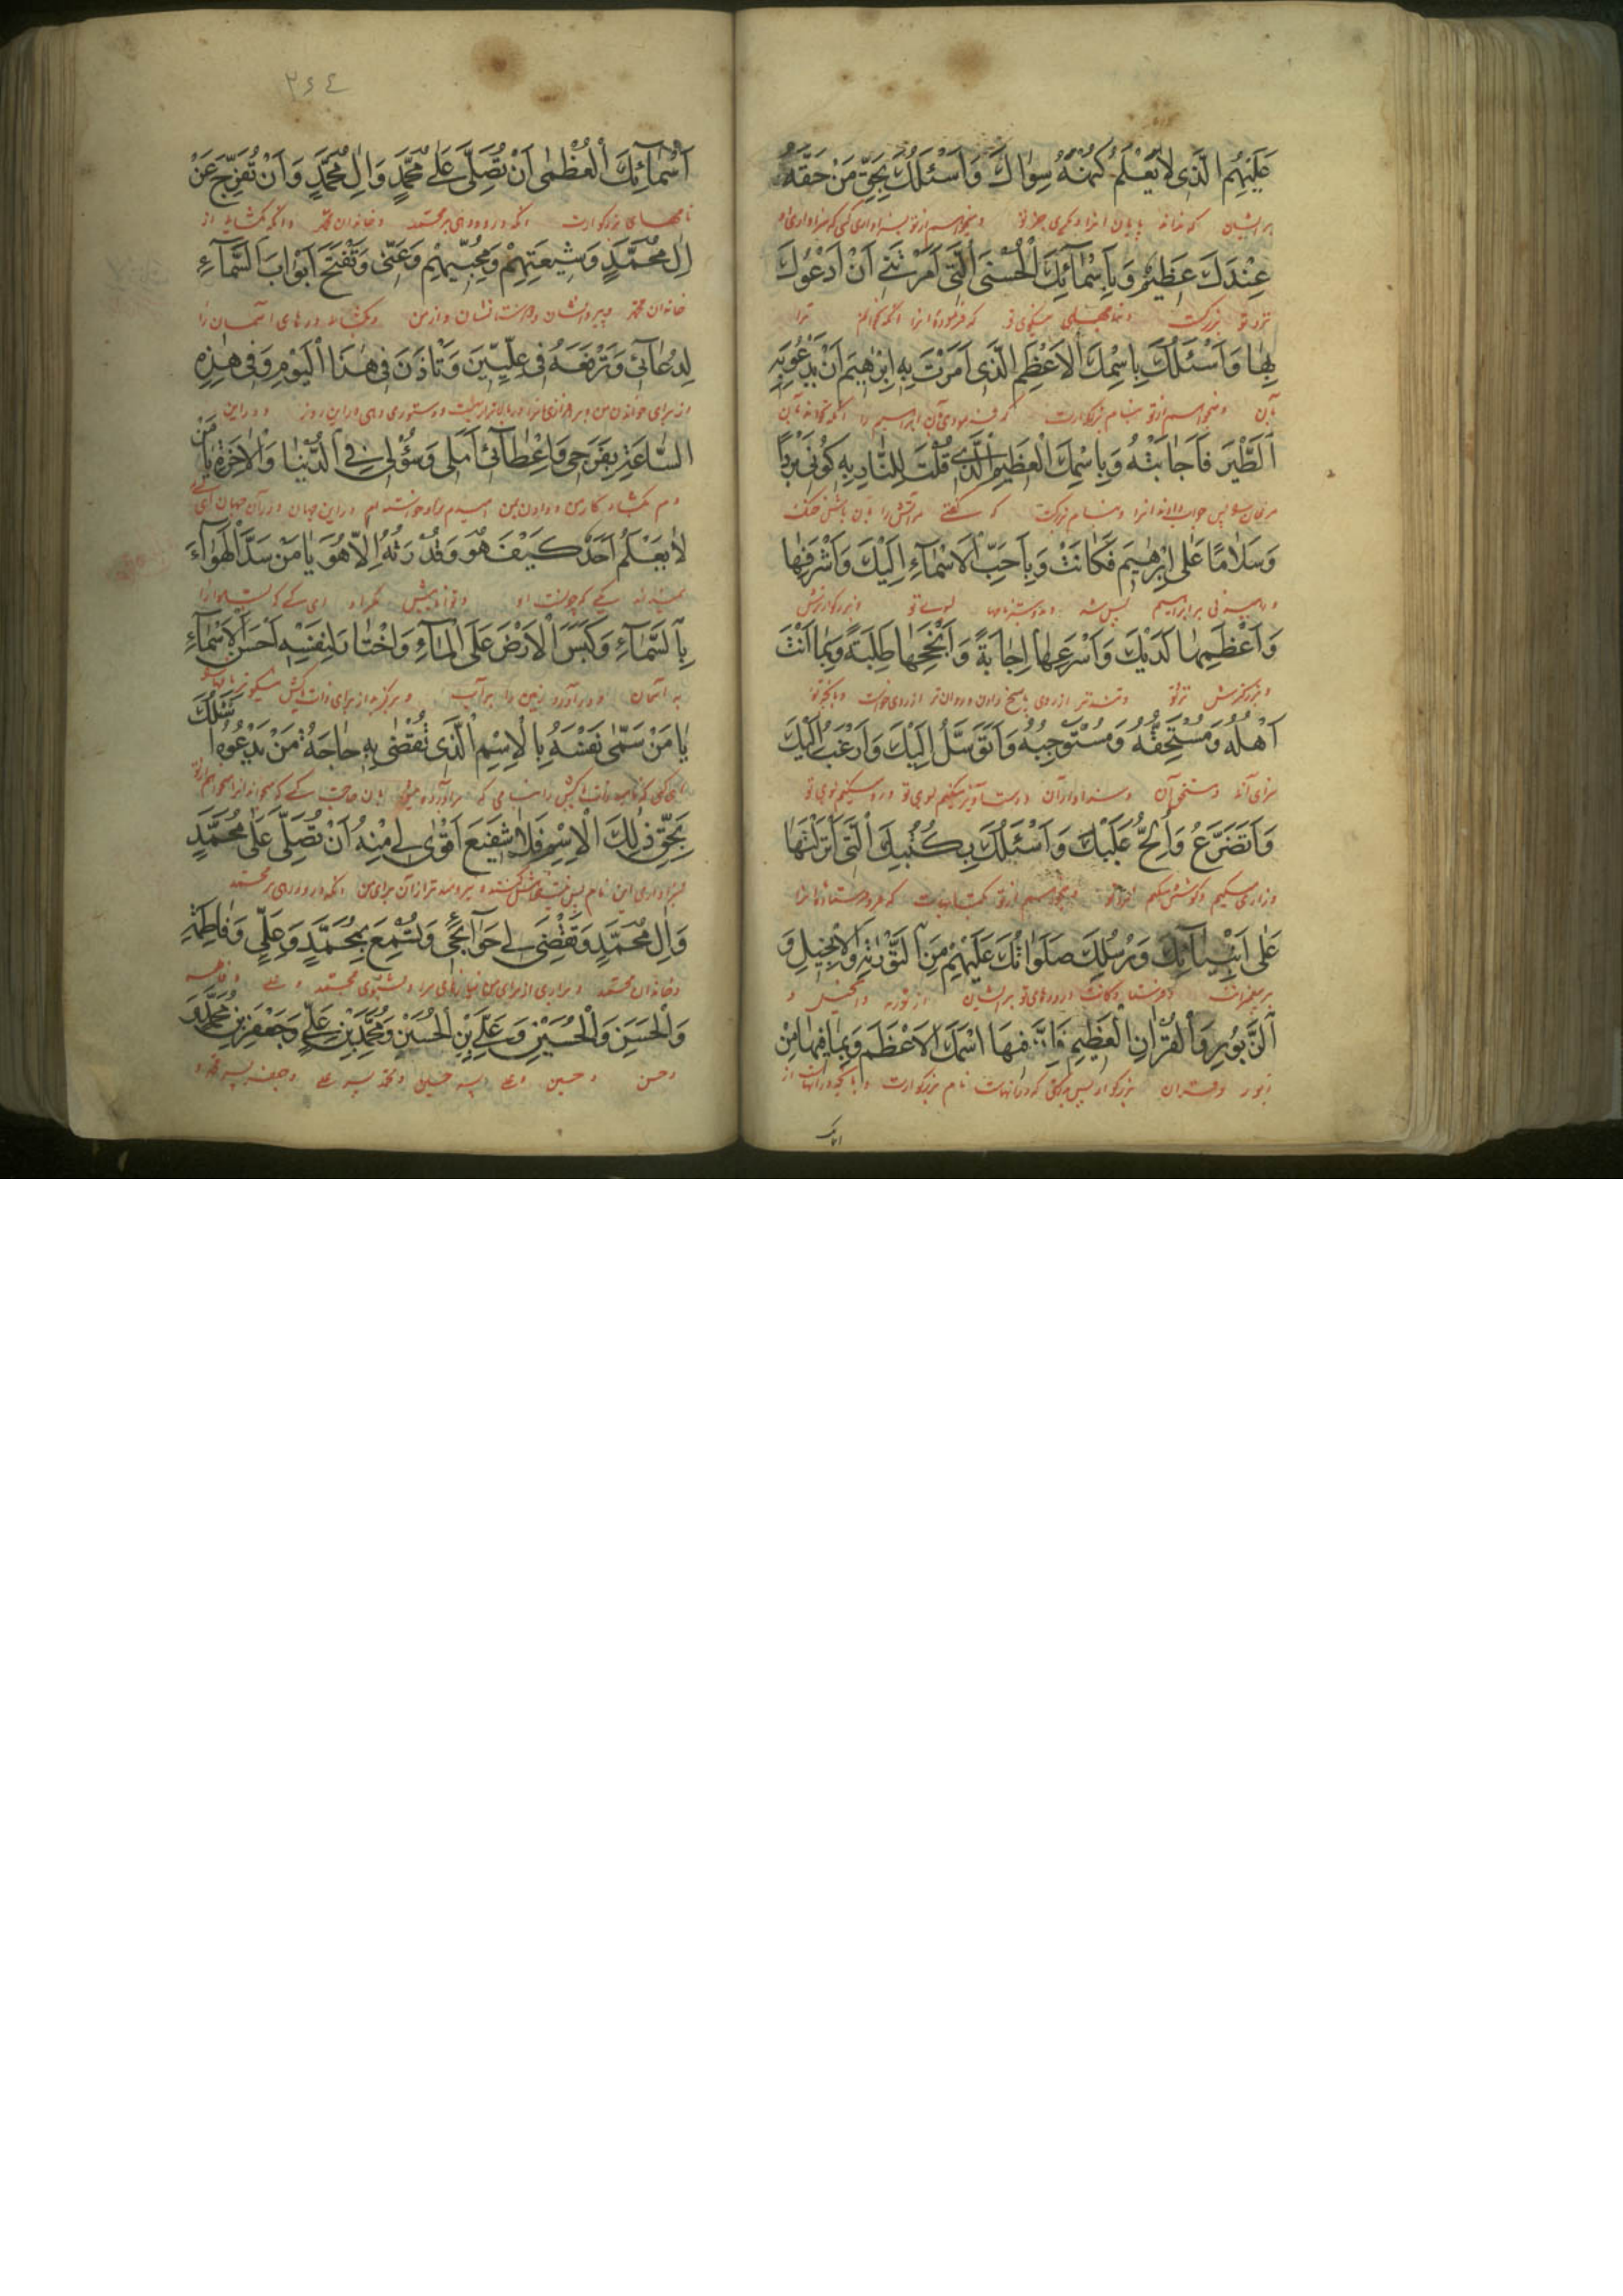 عَلَيْهِمُ الَّذي لاٰ يَعْلَمُ كُنْهَهُ سِوٰاكَ وَاَسْئَلُكَ بِحَقِّ مَنْ حَقُّهُ
برایشان که نداند پایان انرا دیگری جز تو و میخواهم از تو بسزاواری کسی که سزاواری او
عِنْدَكَ عَظيمٌ وَبِاَسْمٰآئِكَ الْحُسْنَى الَّتي اَمَرْتَني اَنْ اَدْعُوَكَ
نزد تو بزرکست و بنامهای نیکوی تو که فرمودهٔ مرا انکه بخوانم ترا
بِهٰا وَاَسْئَلُكَ بِاسْمِكَ الْاَعْظَمِ الَّذي اَمَرْتَ بِهِ اِبْرٰهيمَ اَنْ يَدْعُوَ بِهِ
بآن و میخواهم از تو بنام بزرکوارت که فرمودی بآن ابراهیم را انکه بخواند بآن
الطَّيْرَ فَاَجٰابَتْهُ وَبِاسْمِكَ الْعَظيمِ الَّذي قُلْتَ لِلنّٰارِ بِهِ كُوني بَرْدًا
مرغان پس جواب دادند انرا و بنام بزرکت که کفتی مر آتش را بآن باش خنک
وَسَلاٰمًا عَلٰى اِبْرٰهيمَ فَكٰانَتْ وَبِاَحَبِّ الْاَسْمٰآءِ اِلَيْكَ وَاَشْرَفِهٰا
بر ابراهیم پس شد و بدوسترین نامها بسوی تو و بزرکوارترش
وَاَعْظَمِهٰا لَدَيْكَ وَاَسْرَعِهٰا اِجٰابَةً وَاَنْجَحِهٰا طَلِبَةً وَبِمٰا اَنْتَ
و بزرکترش نزد تو و تندتر از روی پاسخ دادن و روان تر از روی خواست و بانچه تو
اَهْلُهُ وَمُسْتَحِقُّهُ وَمُسْتَوْجِبُهُ وَاَتَوَسَّلُ اِلَيْكَ وَاَرْغَبُ اِلَيْكَ
سزای آنی و مستحق آن و سزاوار آن و دست آویز میکنم بسوی تو و رو میکنم بسوی تو
وَاَتَضَرَّعُ وَاُلِحُّ عَلَيْكَ وَاَسْئَلُكَ بِكُتُبِكَ الَّتي اَنْزَلْتَهٰا
و زاری میکنم و کوشش میکنم بر تو و میخواهم از تو بکتابهایت که فرو فرستادهٔ انرا
عَلٰى اَنْبِيٰآئِكَ وَرُسُلِكَ صَلَوٰاتُكَ عَلَيْهِمْ مِنَ التَّوْرٰيةِ وَالْاِنْجيلِ وَ
بر پیغمبرانت و فرستادکانت درودهای تو برایشان از توریة و انجیل و
الزَّبُورِ وَالْقُرْاٰنِ الْعَظيمِ فَاِنَّ فيهَا اسْمَكَ الْاَعْظَمَ وَبِمٰا فيهٰا مِنْ
زبور و قران بزرکوار پس بدرستی که در انهاست نام بزرکوارت و بانچه در انهاست از
۲۶٤
اَسْمٰآئِكَ الْعُظْمٰى اَنْ تُصَلِّيَ عَلٰى مُحَمَّدٍ وَاٰلِ مُحَمَّدٍ وَاَنْ تُفَرِّجَ عَنْ
نامهای بزرکوارت انکه درود دهی بر محمد و خاندان محمد و انکه بکشاید از
اٰلِ مُحَمَّدٍ وَشيعَتِهِمْ وَمُحِبّيهِمْ وَعَنّي وَتَفْتَحَ اَبْوٰابَ السَّمٰآءِ
خاندان محمد و پیروانشان و دوستانشان و از من و بکشاید درهای آسمان را
لِدُعٰآئي وَتَرْفَعَهُ في عِلِّيّينَ وَتَأْذَنَ في هٰذَا الْيَوْمِ وَفي هٰذِهِ
از برای خواندن من و دستوری دهی در این روز و در این
السّٰاعَةِ بِفَرَجي وَاِعْطٰآئي اَمَلي وَسُؤْلي فِي الدُّنْيٰا وَالْاٰخِرَةِ يٰا مَنْ
دم بکشاد کار من و دادن بمن امیدم در این جهان و در آن جهان ای کسی
لاٰ يَعْلَمُ اَحَدٌ كَيْفَ هُوَ وَقُدْرَتُهُ اِلاّٰ هُوَ يٰا مَنْ سَدَّ الْهَوٰآءَ
نمیداند کسی که چونست او و توانائیش مکر او ای کسی که
بِالسَّمٰآءِ وَكَبَسَ الْاَرْضَ عَلَى الْمٰآءِ وَاخْتٰارَ لِنَفْسِهِ اَحْسَنَ الْاَسْمٰآءِ
به آسمان و درآورد زمین را بر آب و برکزید از برای ذات نیکوترین نامها
يٰا مَنْ سَمّٰى نَفْسَهُ بِالْاِسْمِ الَّذي تُقْضٰى بِهِ حٰاجَةُ مَنْ يَدْعُوهُ اَسْئَلُكَ
بِحَقِّ ذٰلِكَ الْاِسْمِ فَلاٰ شَفيعَ اَقْوٰى لي مِنْهُ اَنْ تُصَلِّيَ عَلٰى مُحَمَّدٍ
بسزاواری این نام پس نیست از آن برای من انکه درود دهی بر محمد
وَاٰلِ مُحَمَّدٍ وَتَقْضِيَ لي حَوٰآئِجي وَتُسْمِعَ بِمُحَمَّدٍ وَعَلِيٍّ وَفٰاطِمَةَ
و خاندان محمد و براری از برای من و علی و فاطمه
وَالْحَسَنِ وَالْحُسَيْنِ وَعَلِيِّ بْنِ الْحُسَيْنِ وَمُحَمَّدِ بْنِ عَلِيٍّ وَجَعْفَرِ بْنِ مُحَمَّدٍ وَ
و حسن و حسین و علی پسر حسین و محمد پسر علی و جعفر پسر محمد و